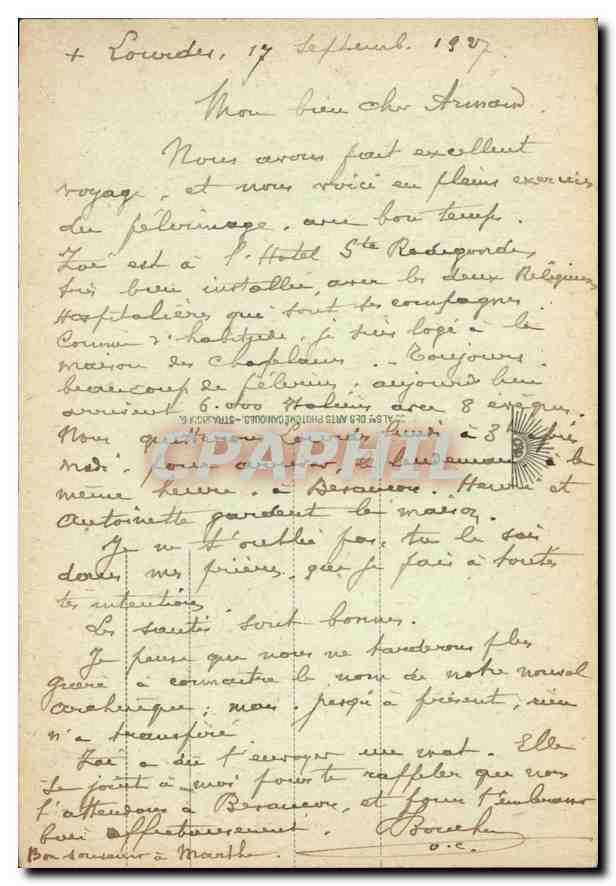 + Lourdes, 17 Septemb. 1927.
Mon bien cher Armand.
Nous avons fait excellent
voyage, et nous voici en pleins exercices
du pélerinage, avec bon temps.
Zoé est à l'Hotel Ste Radegonde,
très bien installée, avec les deux Religieuses
Hospitalières qui sont ses compagnes.
Comme d'habitude, je suis logé à la
maison des Chapelains. - Toujours
beaucoup de pélerins, aujourd'hui
arrivent 6.000 Italiens avec 8 évêques.
Nous quitterons Lourdes lundi à 3h après
midi, pour arriver, le lendemain à la
même heure, à Besancon. Henri et
Antoinette gardent la maison.
Je ne t'oublie pas, tu le sais
dans mes prières, que je fais à toutes
tes intentions.
Les santés sont bonnes.
Je pense que nous ne tarderons plus
guère à connaitre le nom de notre nouvel
archevêque; mais, jusqu'à présent, rien
n'a transpiré.
Zoé a dû t'envoyer un mot. Elle
se joint à moi pour te rappeler que nous
t'attendons à Besancon, et pour t'embrasser
bien affectueusement.
o.c.
Bon souvenir à Marthe.
DES ARTS PHOTOMÉCANIQUES - STRASBOURG
CPAPHIL